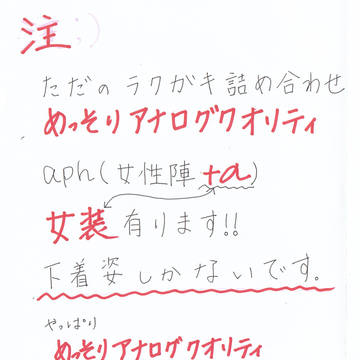 注:)
ただのラクガキ詰め合わせ
めっそりアナログクオリティ
aph(女性陣+α)
女装有ります!!
下着姿しかないです。
やっぱり
めっそりアナログクオリティ